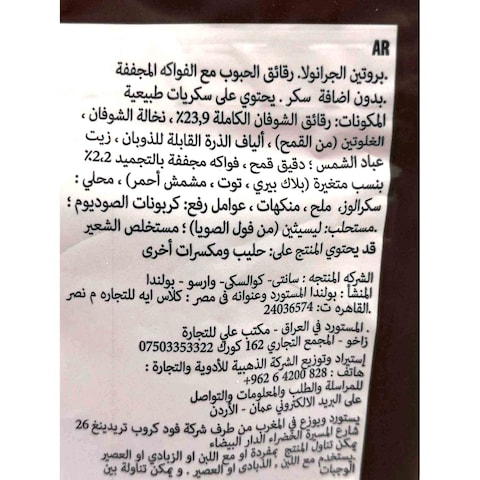 AR
.بروتين الجرانولا. رقائق الحبوب مع الفواكه المجففة
.بدون اضافة سكر. يحتوي على سكريات طبيعية
المكونات: رقائق الشوفان الكاملة 23,9٪ ، نخالة الشوفان ،
الغلوتين (من القمح) ، ألياف الذرة القابلة للذوبان ، زيت
عباد الشمس ؛ دقيق قمح ، فواكه مجففة بالتجميد 2.2٪
بنسب متغيرة (بلاك بيري ، توت ، مشمش أحمر) ، محلي :
سكرالوز، ملح ، منكهات ، عوامل رفع: كربونات الصوديوم ؛
.مستحلب: ليسيثين (من فول الصويا) ؛ مستخلص الشعير
قد يحتوي المنتج على: حليب ومكسرات أخرى
الشركه المنتجه : سانتي- كوالسكي- وارسو - بولندا
المنشأ : بولندا المستورد وعنوانه في مصر : كلاس ايه للتجاره م نصر
.القاهره ت: 24036574
. المستورد في العراق - مكتب علي للتجارة
زاخو - المجمع التجاري 162 كورك 07503353322
إستيراد وتوزيع الشركة الذهبية للأدوية والتجارة :
هاتف : 828 4200 6 962+
للمراسلة والطلب والمعلومات والتواصل
على البريد الالكتروني عمان - الأردن
يستورد ويوزع في المغرب من طرف شركة فود كروب تريدينغ 26
شارع المسيرة الخضراء الدار البيضاء
يمكن تناول المنتج بمفردة او مع اللبن او الزبادى او العصير
.يستخدم مع اللبن ، الذبادى او العصير . و يمكن تناولة بين
الوجبات